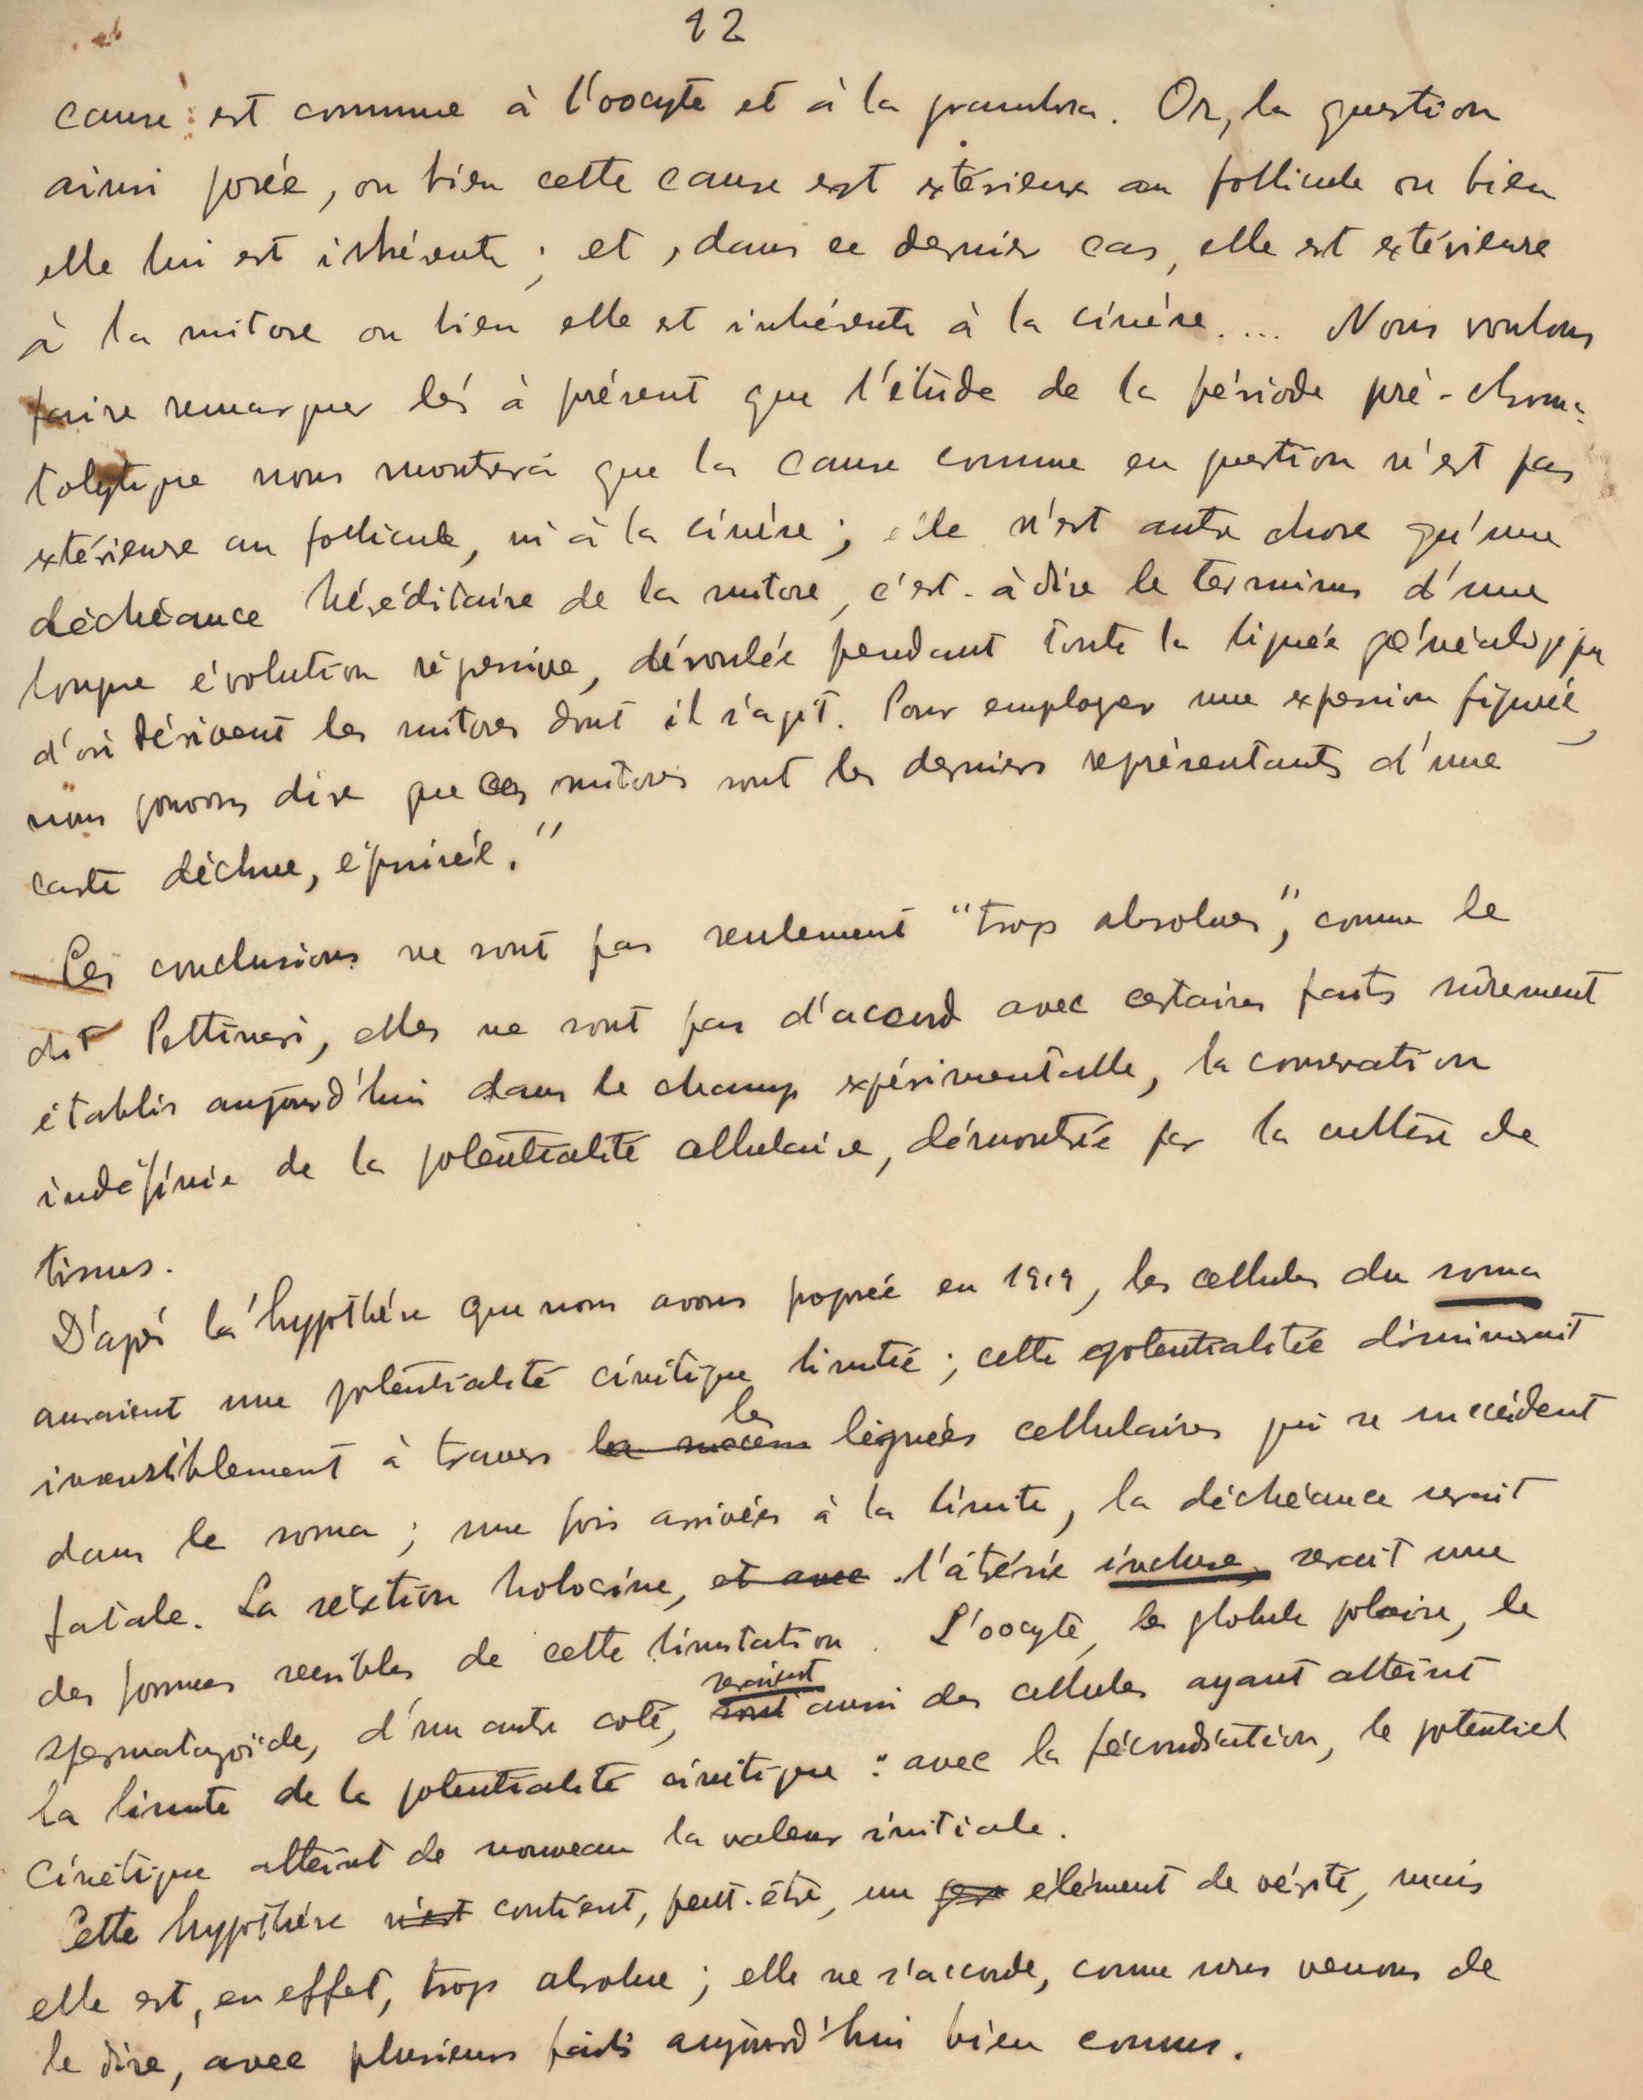 12
cause est commune à l'oocyte et à la granulosa. Or, la question
ainsi posée, ou bien cette cause est extérieure au follicule ou bien
elle lui est inhérente ; et, dans ce dernier cas, elle est extérieure
à la mitose ou bien elle est inhérente à la cinèse.... Nous voulons
faire remarquer dés à présent que l'étude de la période pré-chroma-
tolytique nous montrerà que la cause commune en question n'est pas
extérieure au follicule, ni à la cinèse ; elle n'est autre chose qu'une
déchéance héréditaire de la mitose, c'est-à dire le terminus d'une
longue évolution régressive, déroulée pendant toute la lignée généalogique
d'où dérivent les mitoses dont il s'agit. Pour employer une expression figurée,
nous pouvons dire que ces mitoses sont les derniers représentants d'une
caste déchue, épuisée."
Ces conclusions ne sont pas seulement "trop absolues", comme le
dit Pettinari, elles ne sont pas d'accord avec certaines faits sûrement
établis aujourd'hui dans le champ expérimentalle, la conservation
indéfinie de la potentialité cellulaire, démontrée par la culture de
tissus.
D'après la hypothèse que nous avons proposée en 1919, les cellules du soma
auraient une potentialité cinétique limitée ; cette potentialitée diminuerait
insensiblement à travers les lignées cellulaires qui se succèdent
dans le soma ; une fois arrivées à la limite, la déchéance serait
fatale. La sécrétion holocrine, et avec l'atrésie incluse, serait une
des formes sensibles de cette limitation. L'oocyte, le globule polaire, le
spermatozoïde, d'un autre coté, sont seraient aussi des cellules ayant atteint
la limite de la potentialité cinétique : avec la fécondation, le potentiel
cinétique atteint de nouveau la valeur initiale.
Cette hypothèse n'est contient, peut-être, un élément de vérité, mais
elle est, en effet, trop absolue ; elle ne s'accorde, comme nous venons de
le dire, avec plusieurs faits aujourd'hui bien connus.